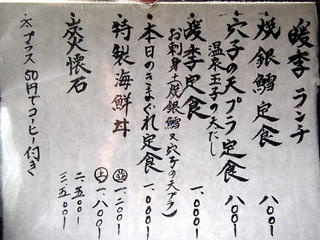 暖季 ランチ
・焼銀鱈定食 八〇〇
・穴子の天プラ定食 八〇〇
温泉玉子の天だし
・暖季定食 一、〇〇〇
(お刺身+焼銀鱈又穴子の天プラ)
・本日のきまぐれ定食 一、〇〇〇
・特製海鮮丼 並 一、二〇〇
上 一、八〇〇
・炭懐石 二、五〇〇
三、五〇〇
・大プラス50円でコーヒー付き